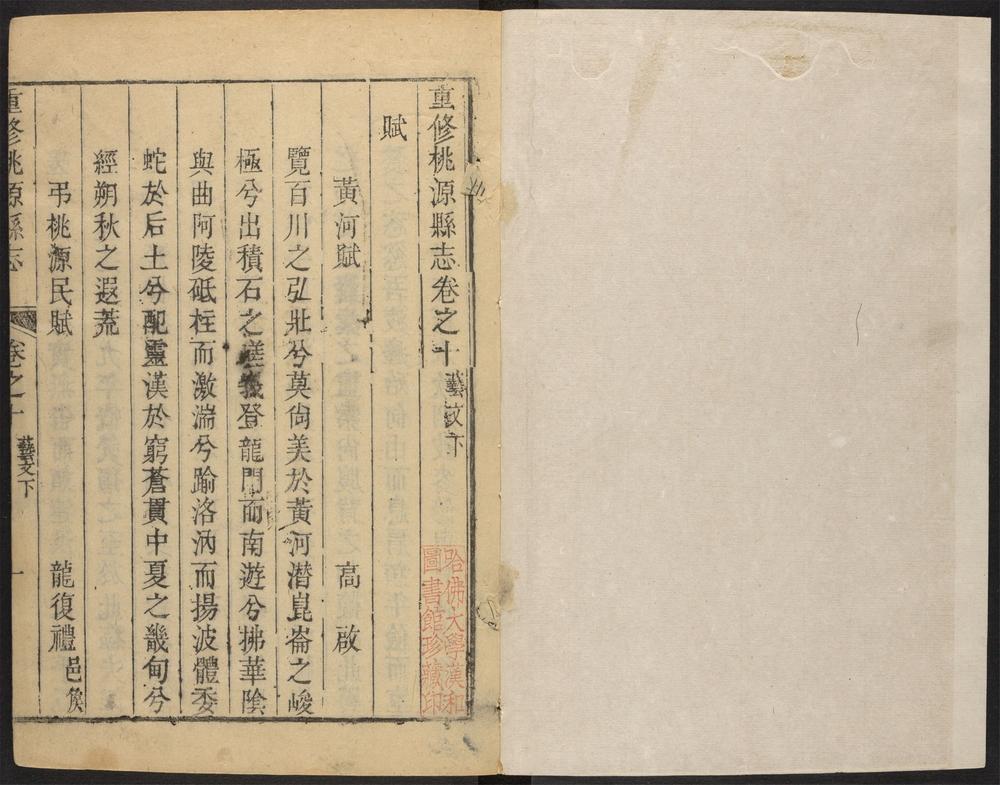 重修桃源縣志卷之十藝文下
賦
黃河賦 高啟
覽百川之弘壯兮莫尙美於黃河潜崑崙之峻
極兮出積石之嵳峩登龍門而南遊兮拂華陰
與曲阿陵砥柱而激湍兮踰洛汭而揚波體委
蛇於后土兮配靈漢於窮蒼貫中夏之畿甸兮
經朔秋之遐荒
弔桃源民賦 龍復禮邑侯
重修桃源縣志 卷之十 藝文下 一
哈佛大學漢和
圖書館珍藏印